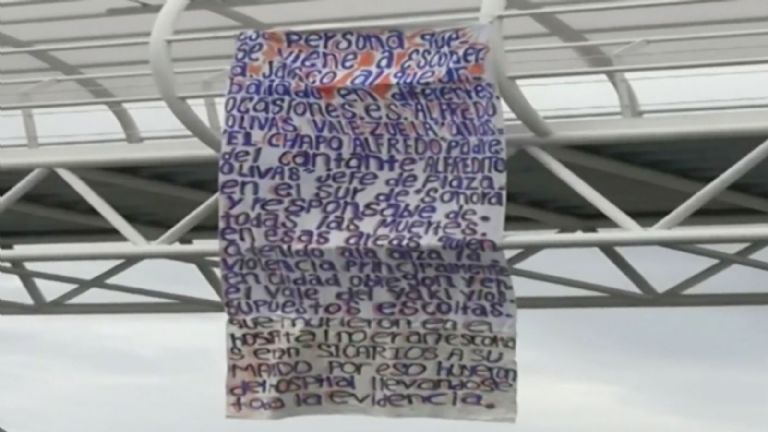 es persona que
se viene a esconder
a Jalisco al que an
baliado en diferentes
ocasiones.es.ALFREDO
OLIVAS VALEZUELA alias-
EL CHAPO ALFREDO Padre
del cantante "ALFREDITO
OLIVAS" Jefe de Plaza
en el sur de sonora
y responsable de-
todas las muertes.
en esas areas quien
a tenido ala alza la
violencia principalmente
en ciudad obregon y en
el valle del yaki y los
supuestos escoltas-
que murieron en el
HOSPITAl no eran escolta
s eran SICARIOS A SU
MANDO POR ESO HUYERON
del HOSPITAl llevandose
toda la evidencia.